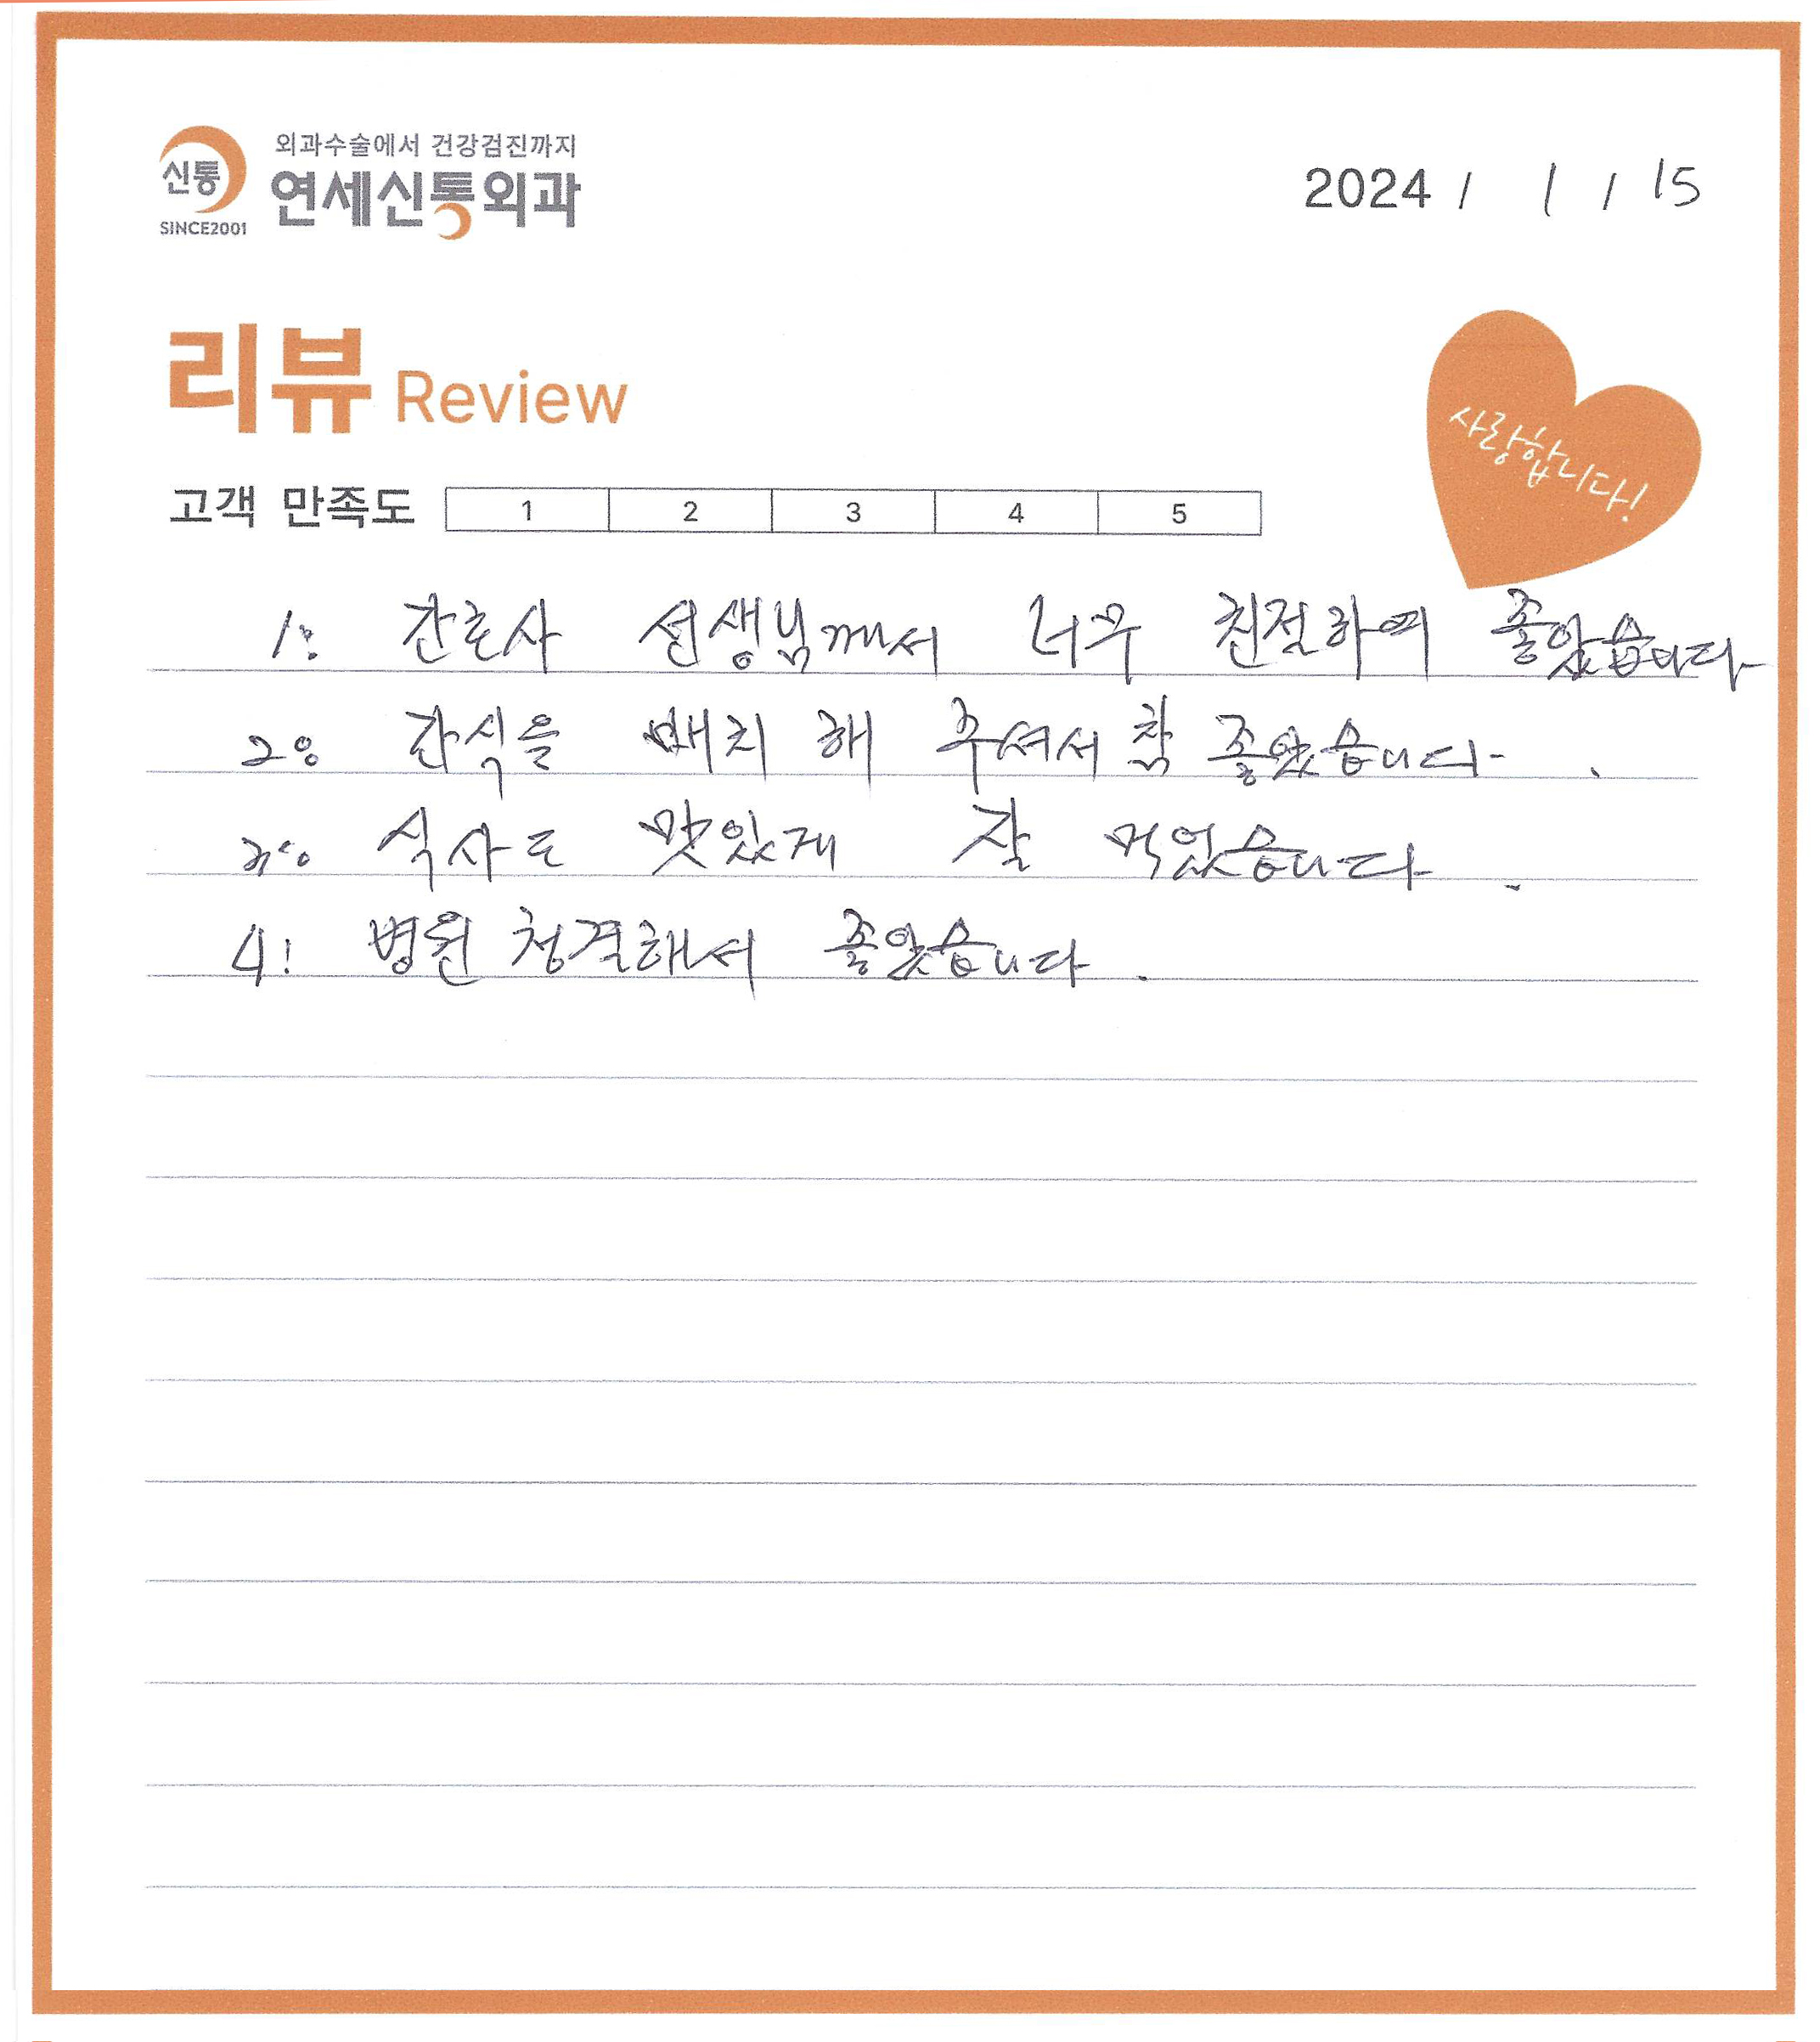 신통
SINCE2001
외과수술에서 건강검진까지
연세신통외과
2024 / 1 / 15
리뷰 Review
사랑합니다!
고객 만족도 1 2 3 4 5
1: 간호사 선생님께서 너무 친절하여 좋았습니다
2: 간식을 배치 해 주셔서 참 좋았습니다.
3: 식사도 맛있게 잘 먹었습니다.
4! 병원 청결해서 좋았습니다.